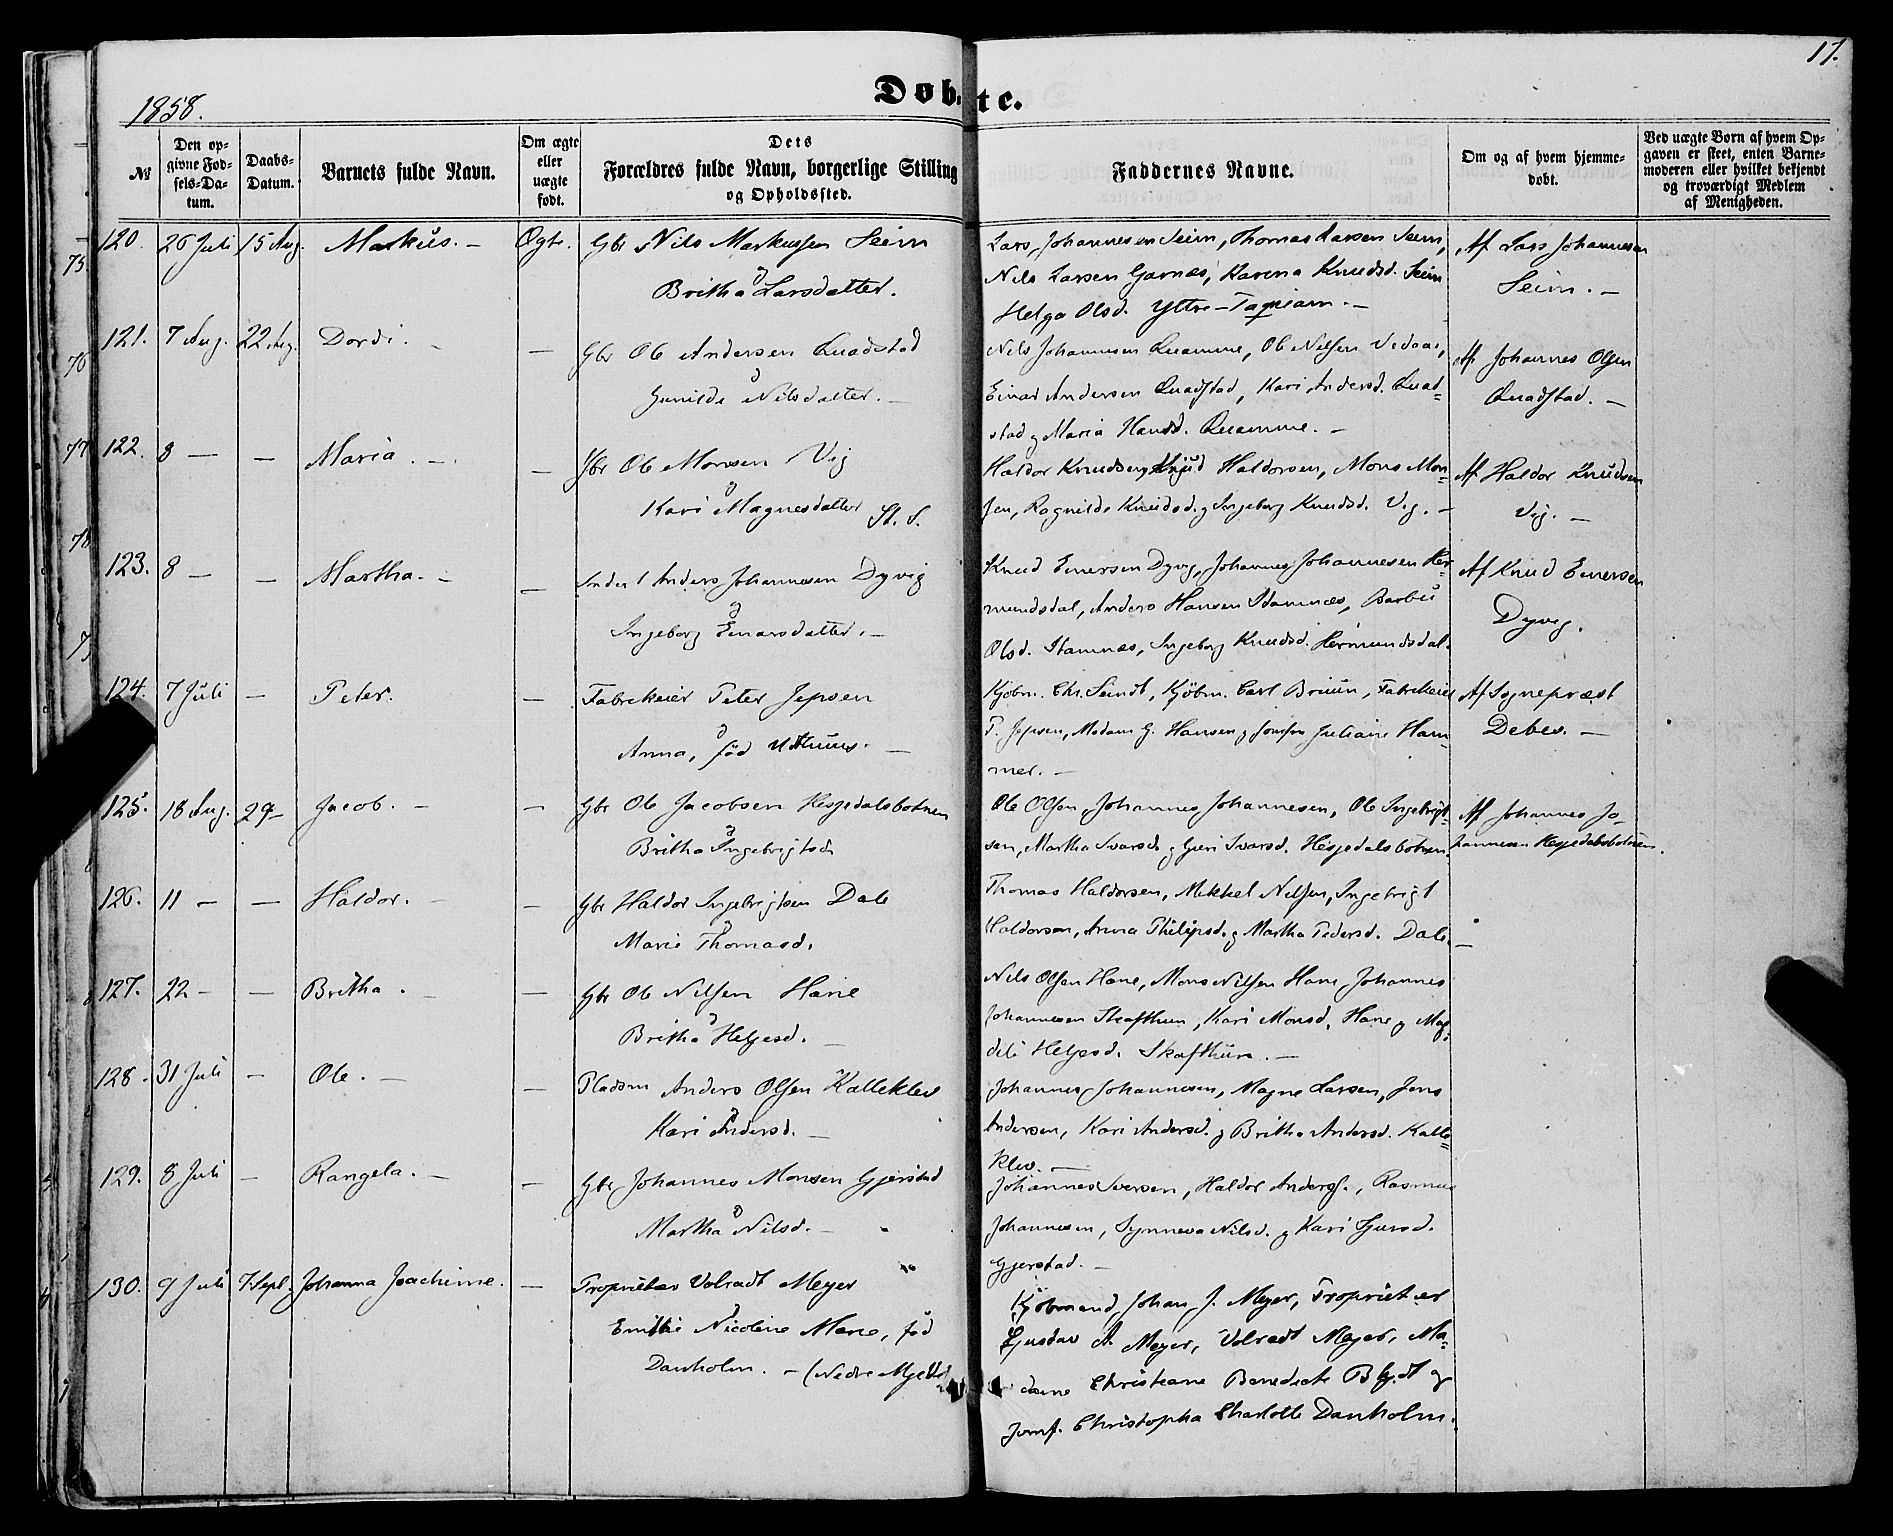 17.
Døbte.
1858.
№
Den opgivne Fødsels-Datum.
Daabs-Datum.
Barnets fulde Navn.
Om ægte eller uægte født.
Dets Forældres fulde Navn, borgerlige Stilling og Opholdssted.
Faddernes Navne.
Om og af hvem hjemmedøbt.
Ved uægte Børn af hvem Opgaven er skeet, enten Barnemoderen eller hvilket bekjendt og troværdigt Medlem af Menigheden.
120. 26 Juli 15 Aug. Markus. — Ægte. Gbr Nils Markussen Seim
& Britha Larsdatter.
Lars Johannesen Seim, Thomas Larsen Seim,
Nils Larsen Garnæs, Karena Knudsd. Seim
Helga Olsd. Yttre-
Af Lars Johannesen
Seim. —
121. 7 Aug. 22 Aug. Dordi. — — Gbr Ole Andersen Quadstad
& Gunilde Nilsdatter. —
Nils Johannesen Quamme, Ole Nilsen Vedaae,
Einar Andersen Quadstad, Kari Andersd. Quad=
stad & Maria Hansd. Quamme. —
Af Johannes Olsen
Quadstad. —
122. 8 — — Maria. — — Gbr Ole Monsen Vig
& Kari Magnesdatter St. S.
Haldor Knudsen, Knud Haldorsen, Mons Mon=
sen, Ragnilde Knudsd. & Ingeborg Knudsd. Vig. —
Af Haldor Knudsen
Vig. —
123. 8 — — Martha. — — Inderst Anders Johannesen Dyvig
& Ingeborg Einarsdatter. —
Knud Einersen Dyvig, Johannes Johannesen Her=
mundsdal, Anders Hansen Stamnæs, Barbu
Olsd. Stamnæs, Ingeborg Knudsd. Hermundsdal.
Af Knud Einersen
Dyvig.
124. 7 Juli — Peter. — Fabrikeier Peter Jepsen
& Anna, fød —
Kjøbm. Chr. Sundt, Kjøbm. Carl Bruun, Fabrikeier
P. Jepsen, Madam G. Hansen & Jomfru Juliane Ham=
mer. —
Af Sognepræst
Debes. —
125. 18 Aug. 29 — Jacob. — — Gbr Ole Jacobsen Hesjedalsbotnen
& Britha Ingebrigtsd.
Ole Olsen, Johannes Johannesen, Ole Ingebrigt=
sen, Martha Ivarsd. & Guri Ivarsd. Hesjedalsbotnen.
Af Johannes Jo=
hannesen Hesjedalsbotnen.
126. 11 — — Haldor. — — Gbr Haldor Ingebrigtsen Dale
& Marie Thomasd.
Thomas Haldorsen, Mikkel Nilsen, Ingebrigt
Haldorsen, Anna Philipsd. & Martha Pedersd. Dale. —
127. 22 — — Britha. — — Gbr Ole Nilsen Hane
& Britha Helgesd. —
Nils Olsen Hane, Mons Nilsen Hane, Johannes
Johannesen Skafthun, Kari Monsd. Hane & Mag=
deli Helgesd. Skafthun. —
128. 31 Juli — Ole. — — Pladsm Anders Olsen Kalleklev
& Kari Andersd. —
Johannes Johannesen, Magne Larsen, Jens
Andersen, Kari Andersd. & Britha Andersd. Kalle=
klev. —
129. 8 Juli — Rangela. — — Gbr Johannes Monsen Gjerstad
& Martha Nilsd. —
Johannes Iversen, Haldor Anders., Rasmus
Johannesen, Synneva Nilsd. & Kari Sjursd.
Gjerstad. —
130. 9 Juli 7 Sept. Johanna Joachime. — Proprietær Volradt Meyer
& Emilie Nicoline Marie, fød
Danholm. — (Nedre Mjelde)
Kjøbmand Johan J. Meyer, Proprietær
Gustav A. Meyer, Volradt Meyer, Ma=
dame Christiane Benedicte Blydt og
Jomf. Christopha Charlotte Danholm.